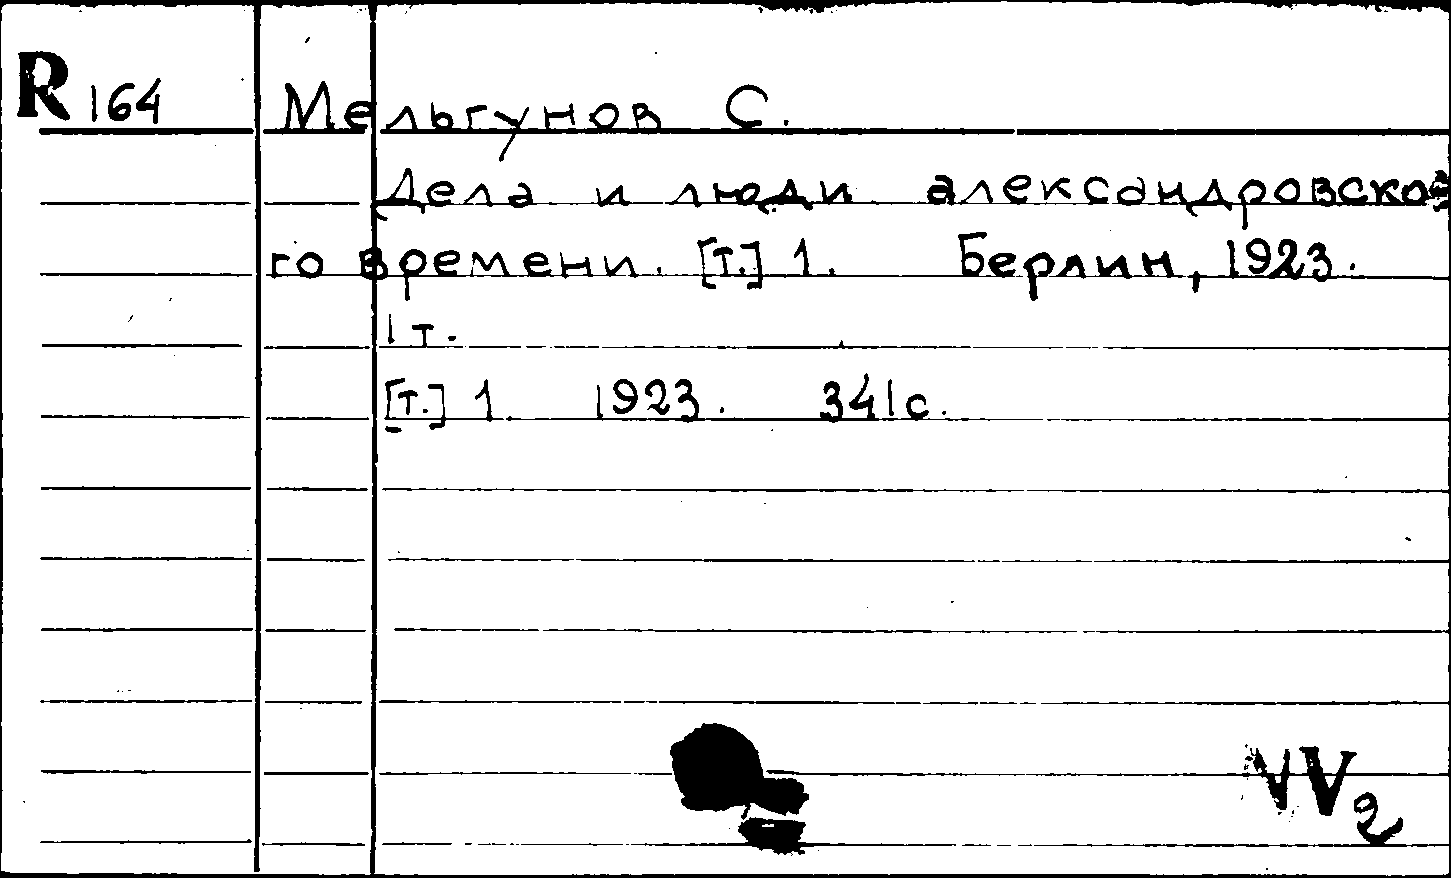 R 164 Мельгунов С.
Дела и люди александровско-
го времени. [т.] 1. Берлин, 1923.
1 т.
[т.] 1. 1923. 341 с.
VV2